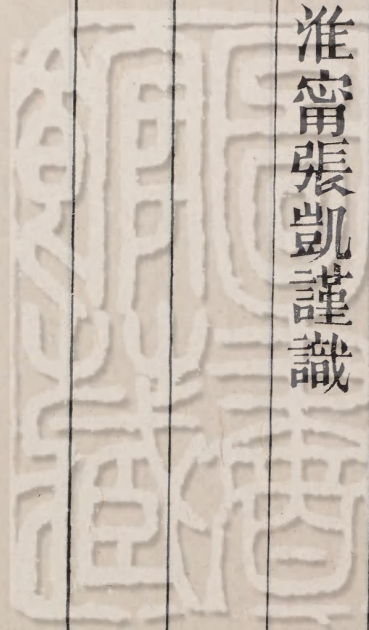 淮甯張凱謹識